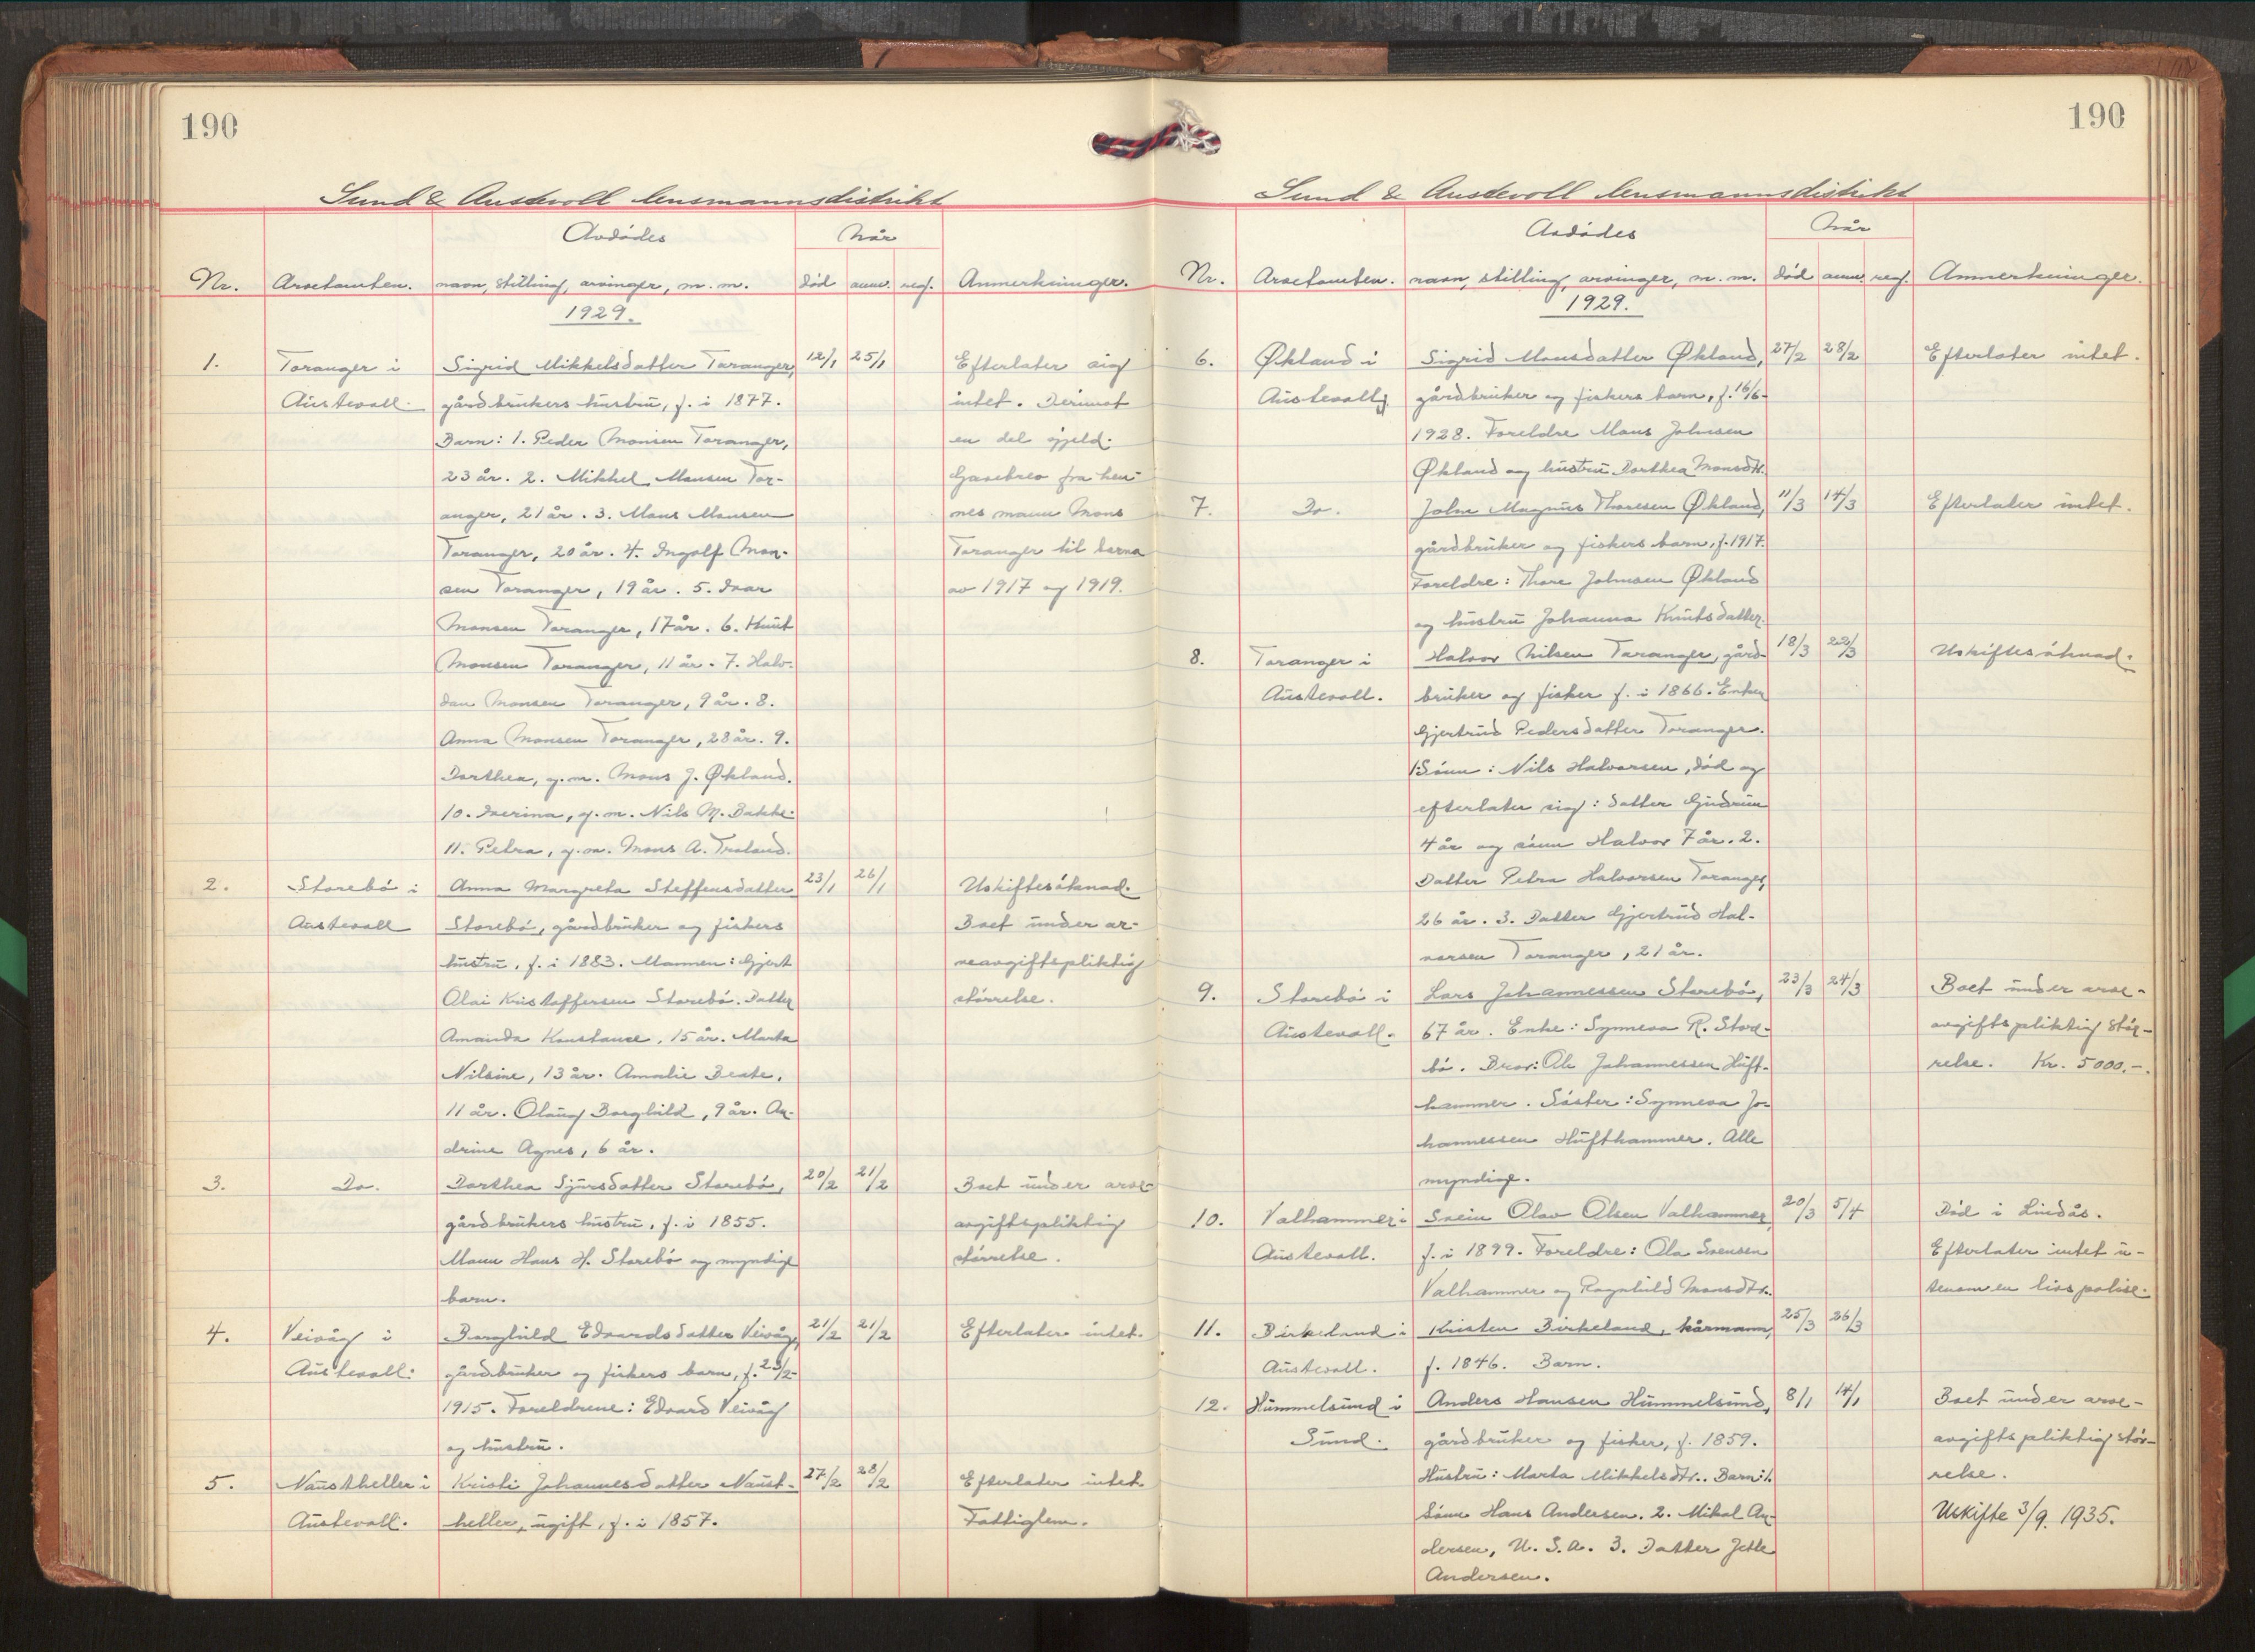 190
Sund & Austevoll lensmannsdistrikt
Avdødes
Når
Nr. Avsetomten. navn, stilling, arvinger, m. m. død anm. reg. Anmerkninger.
1929.
1. Taranger i Sigrid Mikkelsdatter Taranger, 12/1 25/1 Efterlater sig
Austevoll. gårdbrukers hustru, f. i 1877. intet. Derimot
Barn: 1. Peder Monsen Taranger, en del gjeld.
23 år. 2. Mikkel Monsen Tar- Gavebrev fra hen-
anger, 21 år. 3. Mons Monsen nes mann Mons
Taranger, 20 år. 4. Ingolf Mon- Taranger til barna
sen Taranger, 19 år. 5. Ivar av 1917 og 1919.
Monsen Taranger, 17 år. 6. Knut
Monsen Taranger, 11 år. 7. Halv-
dan Monsen Taranger, 9 år. 8.
Anna Monsen Taranger, 28 år. 9.
Dorthea, g. m. Mons J. Økland.
10. Iverina, g. m. Nils M. Bakke.
11. Petra, g. m. Mons A. Troland.
2. Storebø i Anna Margreta Steffensdatter 23/1 26/1 Uskiftesøknad.
Austevoll Storebø, gårdbruker og fiskers Boet under ar-
hustru, f. i 1883. Mannen: Gjert veavgiftspliktig
Olai Kristoffersen Storebø. Datter størrelse.
Amanda Konstanse, 15 år. Marta
Nilsine, 13 år. Amalie Beate,
11 år. Olaug Borghild, 9 år. An-
drine Agnes, 6 år.
3. Do. Dorthea Sjursdatter Storebø, 20/2 21/2 Boet under arve-
gårdbrukers hustru, f. i 1855. avgiftspliktig
Mann Hans H. Storebø og myndige størrelse.
barn.
4. Veivåg i Borghild Edvardsdatter Veivåg, 21/2 21/2 Efterlater intet.
Austevoll. gårdbruker og fiskers barn, f. 23/2-
1915. Foreldrene: Edvard Veivåg
og hustru.
5. Naustheller i Kristi Johannesdatter Naust- 27/2 28/2 Efterlater intet.
Austevoll. heller, ugift, f. i 1857. Fattiglem.
190
Sund & Austevoll lensmannsdistrikt
Avdødes
Når
Nr. Avsetomten. navn, stilling, arvinger, m. m. død anm. reg. Anmerkninger.
1929.
6. Økland i Sigrid Monsdatter Økland, 27/2 28/2 Efterlater intet.
Austevoll gårdbruker og fiskers barn, f. 16/6-
1928. Foreldre Mons Johnsen
Økland og hustru Dorthea Monsdtr.
7. Do. John Magnus Thoresen Økland, 11/3 14/3 Efterlater intet.
gårdbruker og fiskers barn, f. 1917.
Foreldre: Thore Johnsen Økland
og hustru Johanna Knutsdatter.
8. Taranger i Halvor Nilsen Taranger, gård- 18/3 22/3 Uskiftesøknad.
Austevoll. bruker og fisker f. i 1866. Enken
Gjertrud Pedersdatter Taranger.
1. Sønn: Nils Halvorsen, død og
efterlater sig: datter Gudrun
4 år og sønn Halvor 7 år. 2.
Datter Petra Halvorsen Taranger,
26 år. 3. Datter Gjertrud Hal-
vorsen Taranger, 21 år.
9. Storebø i Lars Johannessen Storebø, 23/3 24/3 Boet under arve-
Austevoll. 67 år. Enke: Synneva R. Store- avgiftspliktig stør-
bø. Bror: Ole Johannessen Huft- relse. Kr. 5000.-.
hammer. Søster: Synneva Jo-
hannessen Hufthammer. Alle
myndige.
10. Valhammer i Svein Olav Olsen Valhammer, 20/3 5/4 Død i Lindås.
Austevoll. f. i 1899. Foreldre: Ola Svensen Efterlater intet u-
Valhammer og Ragnhild Monsdtr. tenom en livspolise.
11. Birkeland i Kristen Birkeland, kårmann, 25/3 26/3
Austevoll. f. 1846. Barn.
12. Hummelsund i Anders Hansen Hummelsund, 8/1 14/1 Boet under arve-
Sund. gårdbruker og fisker, f. 1859. avgiftspliktig stør-
Hustru: Marta Mikkelsdtr. Barn: 1. relse.
Sønn Hans Andersen. 2. Mikal An- Uskifte 3/9. 1935.
dersen, U. S. A. 3. Datter Jette
Andersen.